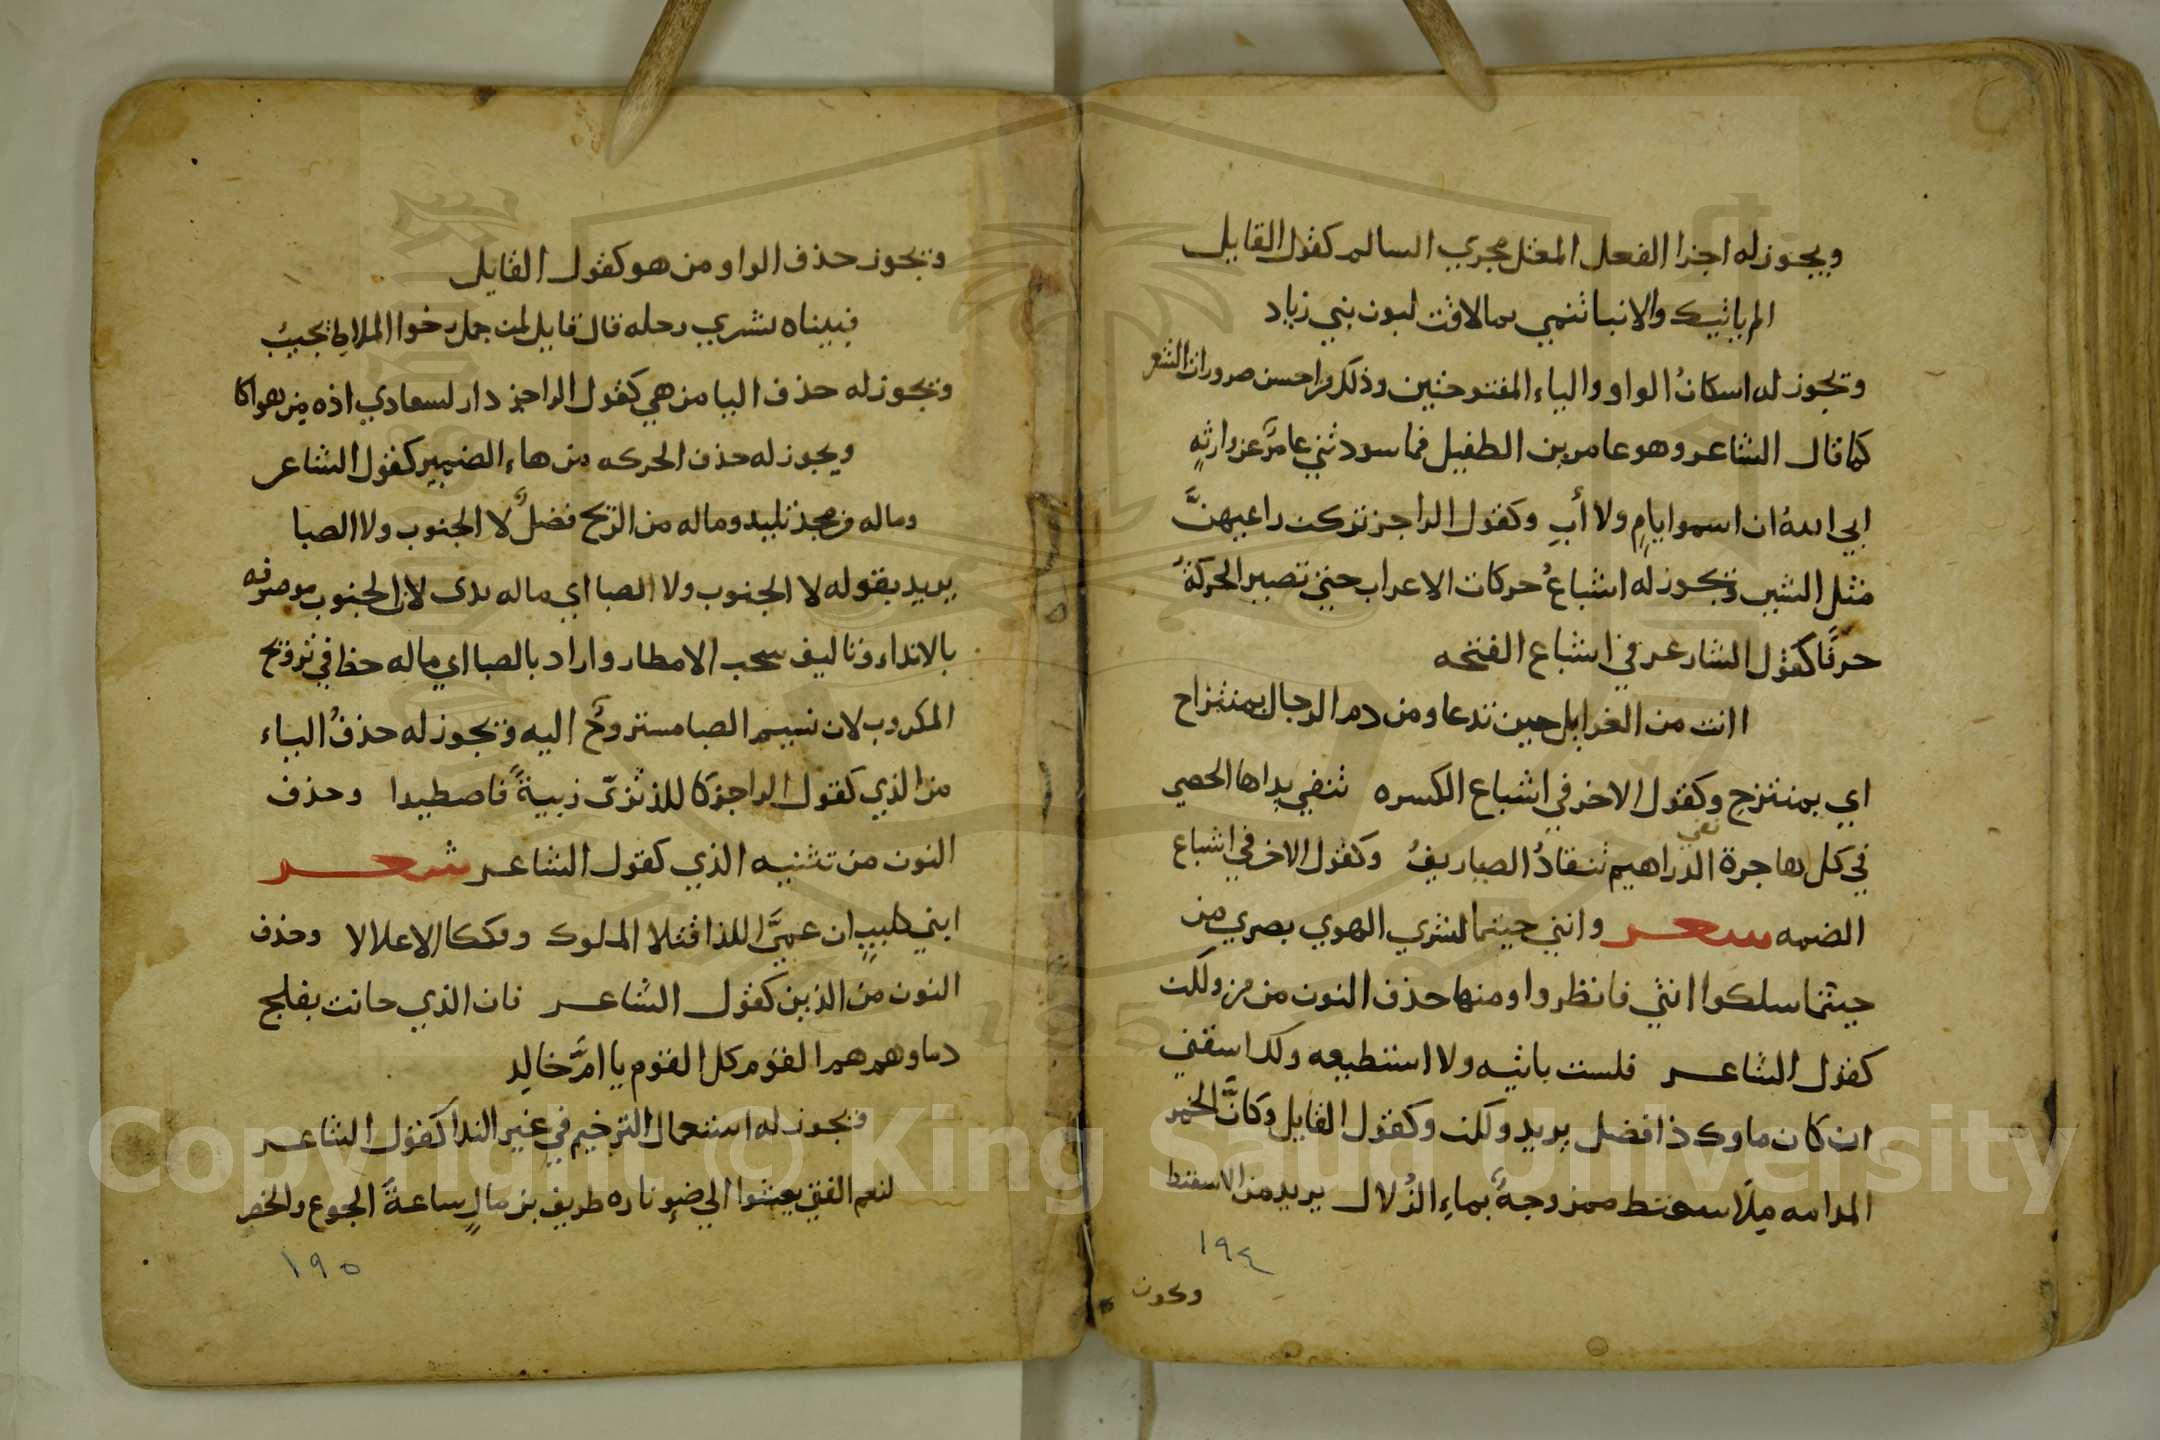 ويجوز له اجرا الفعل المعتل مجري السالم كقول القايل
الم ياتيك والانبا تنمي بما لاقت لبون بني زياد
ويجوز له اسكان الواو والياء المفتوحتين وذلك من احسن ضرورات الشعر
كما قال الشاعر وهو عامر بن الطفيل فما سودتني عامرٌ عن وارثهٍ
ابي الله ان اسموا بامٍ ولا أبِ وكقول الراجز تركت راعيهنَّ
مثل الشن ويجوز له اشباعُ حركات الاعراب حتي تصير الحركةُ
حرفًا كقول الشاعر في اشباع الفتحه
اانت من الغوايل حين تدعا ومن دم الرجال بمنتزاح
اي بمنتزح وكقول الاخر في اشباع الكسره تنفي يداها الحصي
في كل هاجرة الدراهيم تنقادُ الصياريفُ وكقول الاخر في اشباع
نفي
الضمه شعر وانني حيثما تشري الهوي بصري من
حيثما سلكوا اثني فانظروا ومنها حذف النون من من ولكن
كقول الشاعر فلست باتيه ولا استطيعه ولك اسقني
ان كان ماوك ذا فضل يريد ولكن وكقول القايل وكانَّ الخمر
المدامه مِلاسفنط ممزوجةً بماءِ الزُلال يريد من الاسفنط
١٩٤
ويجوز حذف الواو من هو كقول القايل
فبيناه يشري رحله قال قايل لمن جمل رخوا الملاط نجيبُ
ويجوز له حذف اليا من هي كقول الراجز دار لسعادي اذه من هواكا
ويجوز له حذف الحركه من هاء الضمير كقول الشاعر
وماله من مجد تليد وماله من الريح فضلٌ لا الجنوب ولا الصبا
يريد بقوله لا الجنوب ولا الصبا اي ماله ندى لان الجنوب موصوفه
بالانداء وتاليف سحب الامطار واراد بالصبا اي ماله حظا في ترويح
المكروب لان نسيم الصبا مستروحٌ اليه ويجوز له حذفُ الياء
من الذي كقول الراجز كاللذ تزبى زبيةً فاصطيدا وحذف
النون من تثنيه الذي كقول الشاعر شعر
ابني كليبٍ ان عميَّ اللذا قتلا الملوك وفككا الاغلالا وحذف
النون من الذين كقول الشاعر فان الذي حانت بفلج
دماوهم هم القوم كل القوم يا امَّ خالِد
ويجوز له استعمال الترخيم في غير الندا كقول الشاعر
لنعم الفتي يعشوا الي ضوِ ناره طريف بن مالٍ ساعةَ الجوع والخصر
١٩٥